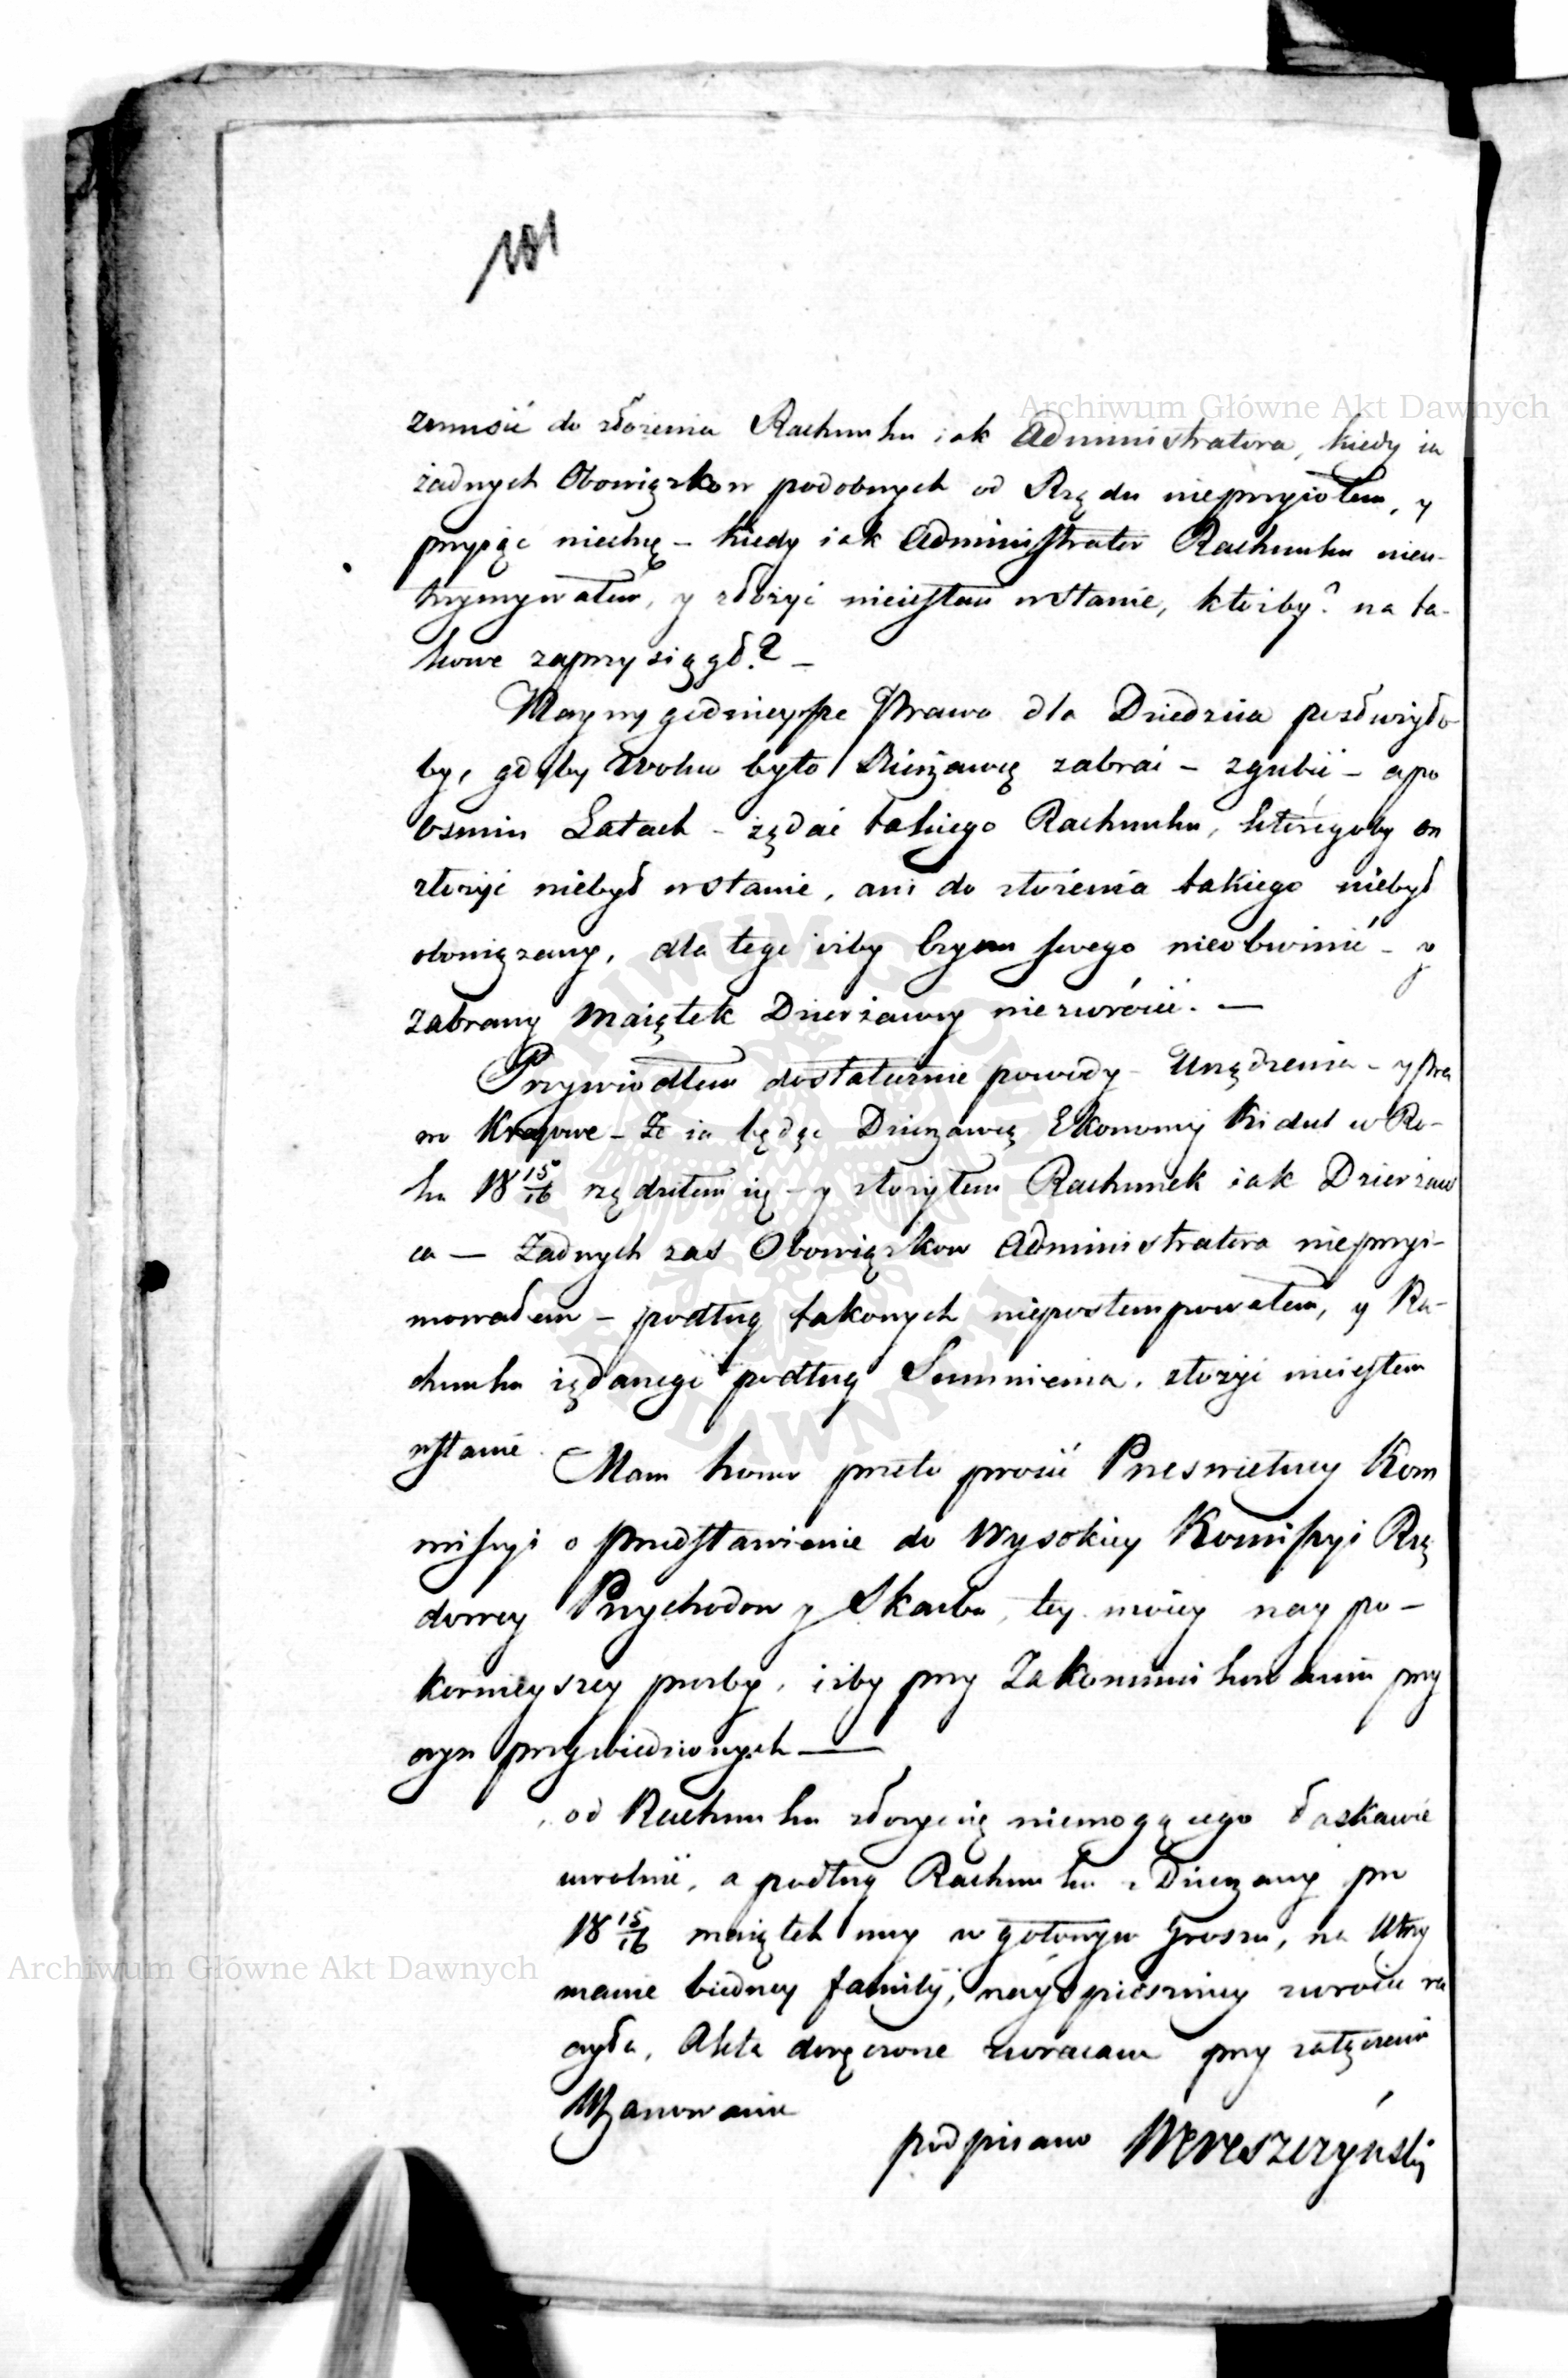 101
Archiwum Główne Akt Dawnych
zmusić do złożenia Rachunku iak Administratora, kiedy ia
żadnych Obowiązkow podobnych od Rządu nieprzyiołem, y
przyiąć niechcę – kiedy iak Administrator Rachunku nieu-
trzymywałem, y złożyć nieiestem wstanie, któżby? na ta-
kowe zaprzysiągł? –
Naywygodnieysze Prawo dla Dziedzica posłużyło
by, gdyby Wolno było Dzierżawcę zabrać – zgubić – a po
osmiu Latach – żądać takiego Rachunku, któregoby on
złożyć niebył wstanie, ani do złożenia takiego niebył
obowiązany, dla tego iżby Czynu swego nieobwinić – y
zabrany Maiątek Dzierżawcy niezwrócić. –
Przywiodłem dostatecznie powody – Urządzenia – y Pra
wo Kraiowe – Że ia będąc Dzierzawcą Ekonomij Kidul w Ro-
ku 18 15/16 rządziłem się – y złożyłem Rachunek iak Dzierżaw
ca – Żadnych zas Obowiązkow Administratora nieprzyi-
mowałem – podług takowych niepostempowałem, y Ra-
chunku żądanego podług Sumnienia, złożyć nieiestem
wstanie.
Mam honor przeto prosić Przeswietney Kom
missyi o przedstawienie do Wysokiey Komissyi Rzą
dowey Przychodow y Skarbu, tey moiey nay po-
kornieyszey prozby, iżby przy Zakommunikowaniu przy
czyn przywiedzionych –
od Rachunku złożyć się niemogącego łaskawie
uwolnić, a podług Rachunku z Dzierzawy pro
18 15/16 maiątek moy w gotowym Groszu, na Utrzy
manie biedney familij, nayspieszniey zwrócić ra
czyła, Akta doręczone zwracam przy załączeniu
Uszanowania
podpisano Wereszczyński
Archiwum Główne Akt Dawnych